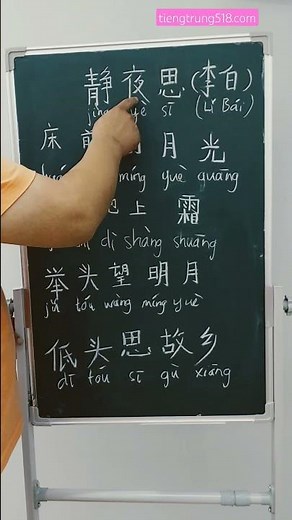 tiengtrung518.com
静夜思(李白)
yè sī (Lǐ Bái)
床 月光
míng yuè guāng
上 霜
dì shàng shuāng
举头望明月
jǔ tóu wàng míng yuè
低头思故乡
dī tóu sī gù xiāng